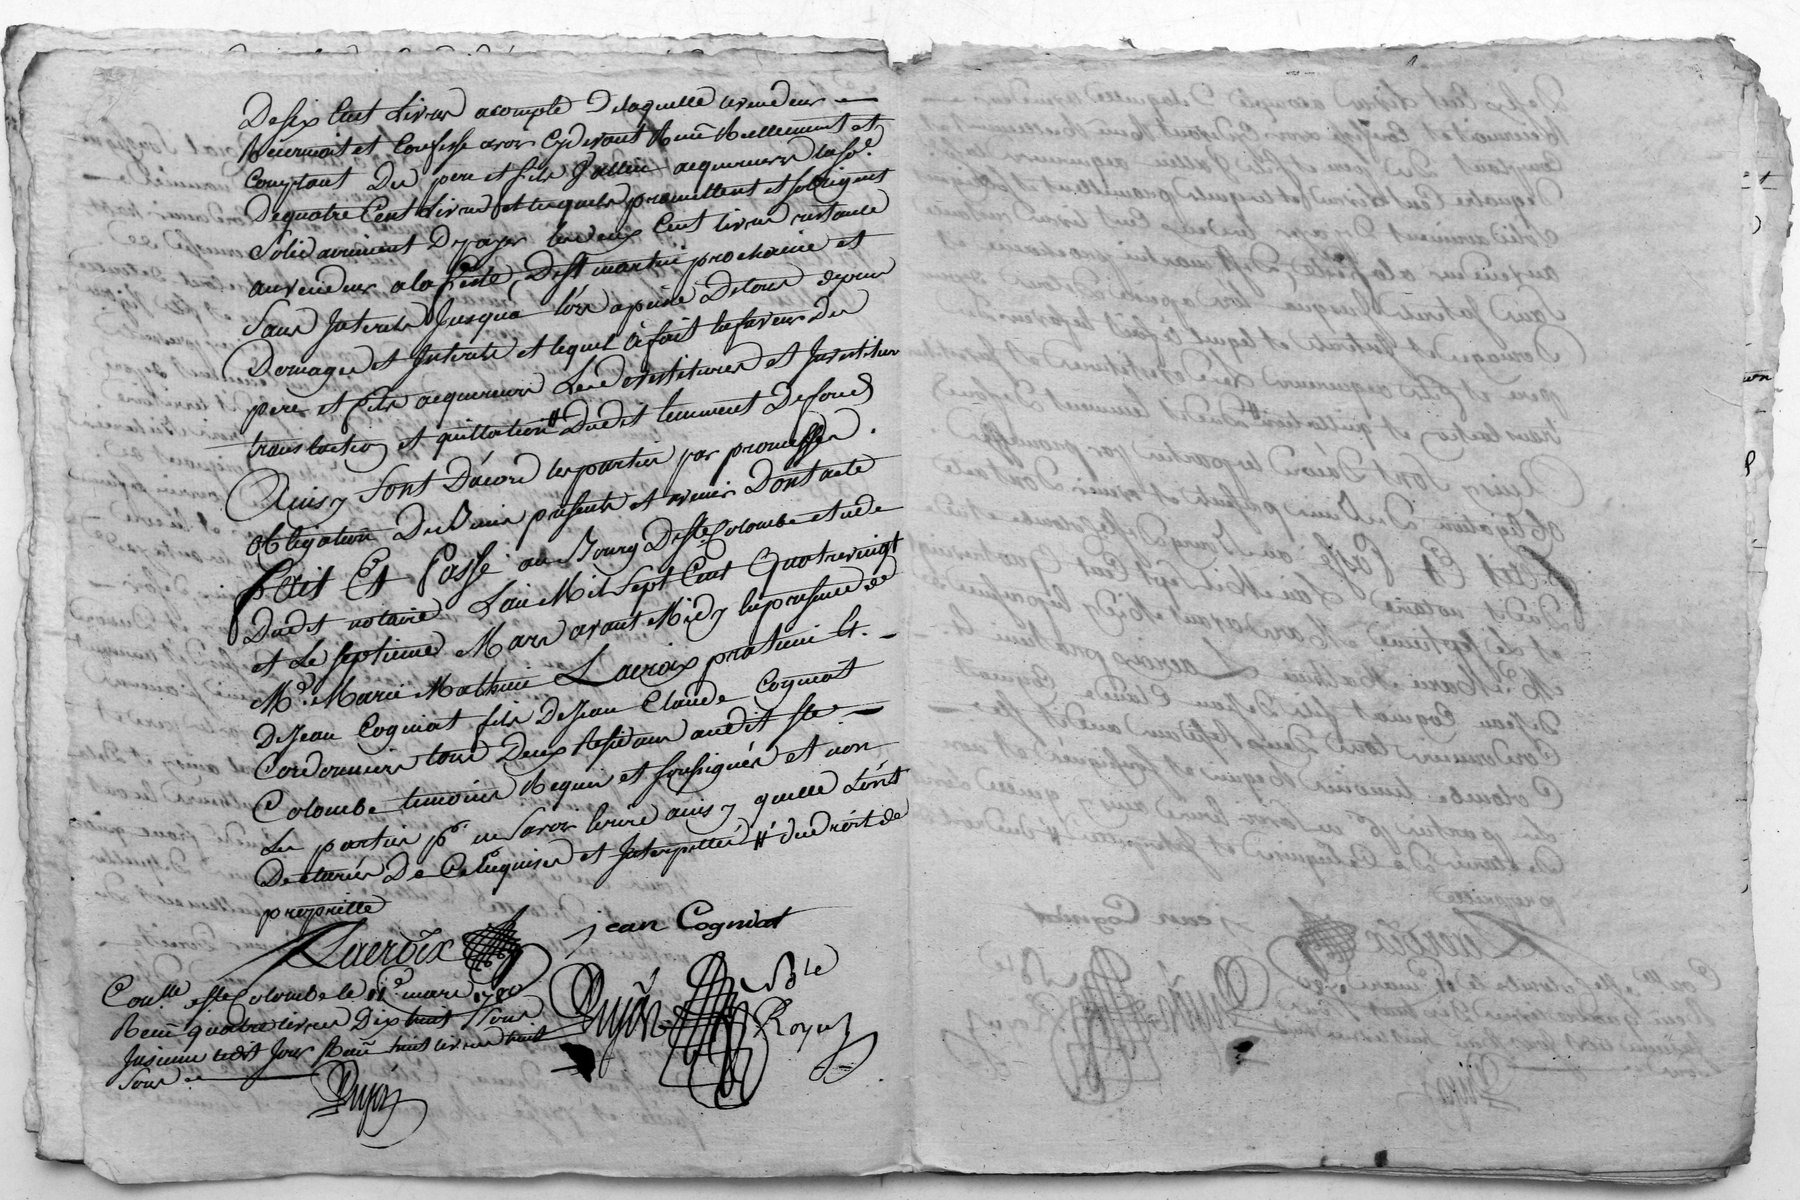 De six Cent Livres acompte De laquelle le vendeur —
Reconnoit et Confesse avoir cy devant Reçu Reellement et
Comptant Du pere et fils acquereurs la so.e
De quatre Cent Livres et lesquels promettent et sobligent
Solidairement De payer les deux Cent livres restante
au vendeur a la feste De st martin prochaine et
Sans Interests Jusqua lors a peine De tous depens
Domages et Interests et lequel à fait en faveur du
pere et fils acquereurs Les devestitures et Investiture
translation et quittation # Dudit tenement De fond
Ainsy Sont D'acord les parties par promesses
obligation De Biens presents et avenir Dont acte
Fait Et Passé au Bourg De ste Colombe etude
Dudit notaire L'an Mil Sept Cent Quatrevingt
et Le septieme Mars avant Midy en presence de
M.e Marie Mathieu Lacroix praticien et —
De Jean Cogniat fils De Jean Claude Cogniat
Cordonnier tous Deux Residans audit ste —
Colombe temoins Requis et soussignés et non
Les parties p.r ne savoir ecrire ainsy quelle L'ont
Declarés De Ce Enquises et Interpellés # du droit de
proprieté
Lacroix
jean Cogniat
Con.lle a ste Colombe le mars 1780
Reçu quatre livres Dix huit Sous
Insinué ledit Jour Reçu huit livres huit
Sous
Dujon
N.re
Royal
Dujon